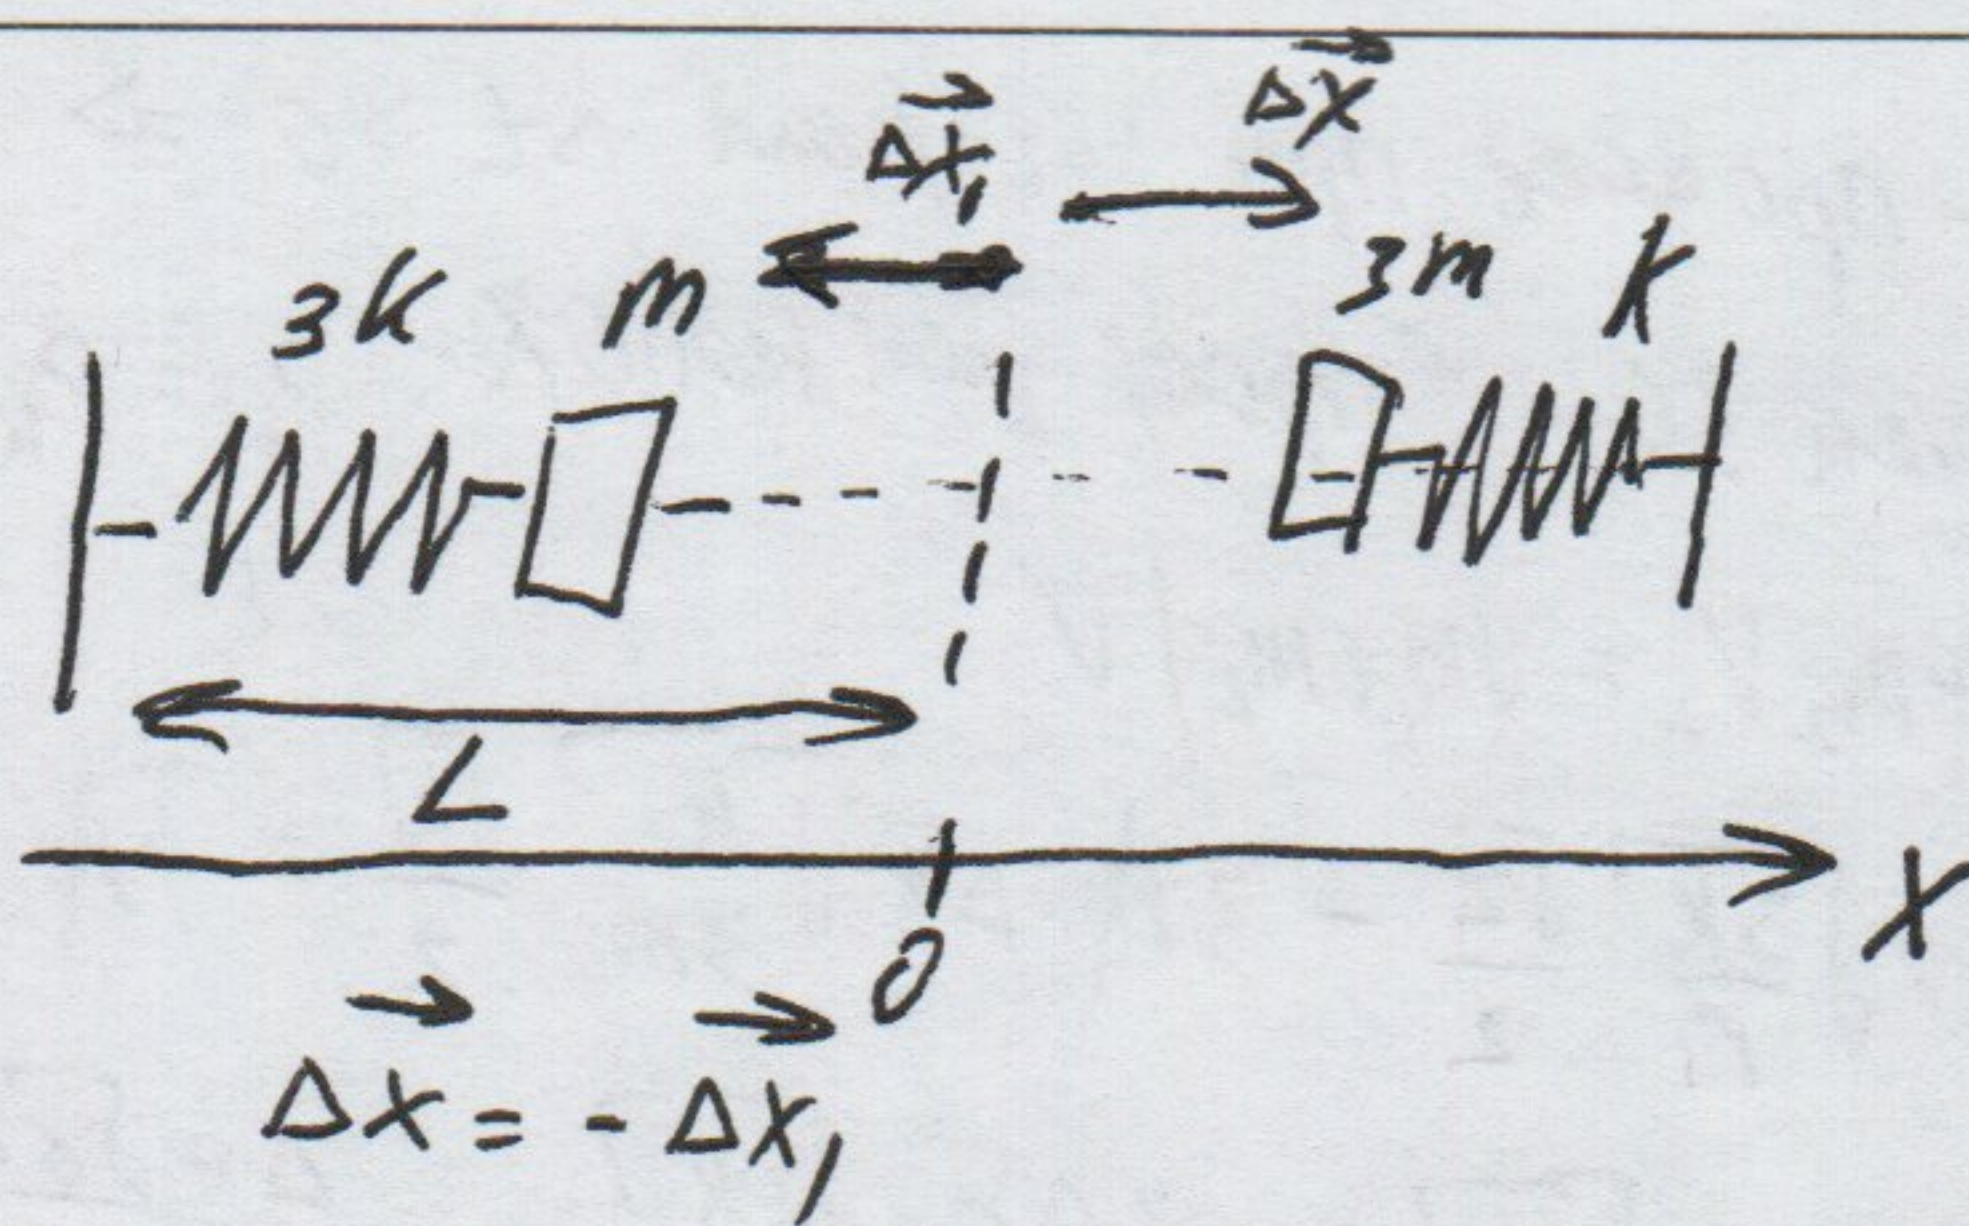 Δx₁ Δx
3k m 3m k
L
x
0
Δx = - Δx₁